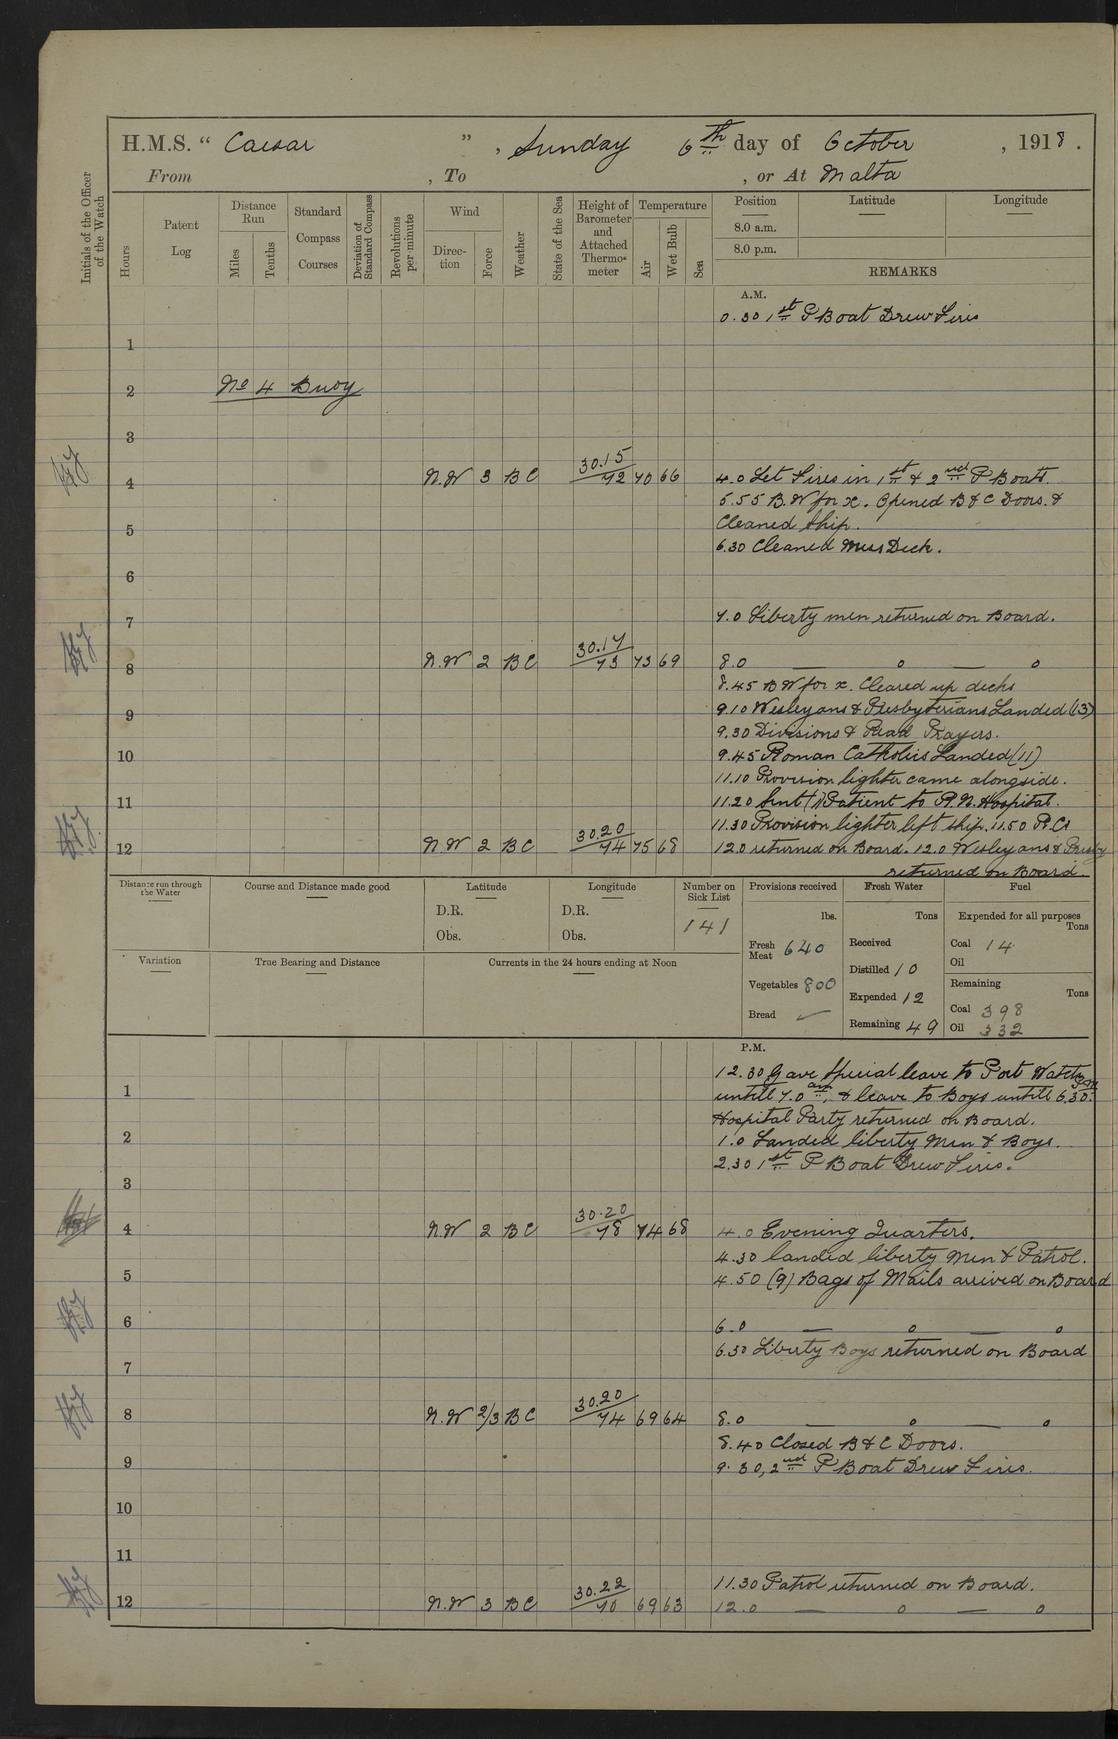 H.M.S. " Caesar ", Sunday 6th day of October, 1918.
From , To , or At Malta
Initials of the Officer of the Watch
Hours
Patent Log
Distance Run
Miles
Tenths
Standard Compass Courses
Deviation of Standard Compass
Revolutions per minute
Wind
Direction
Force
Weather
State of the Sea
Height of Barometer and Attached Thermometer
Temperature
Air
Wet Bulb
Sea
Position Latitude Longitude
8.0 a.m.
8.0 p.m.
REMARKS
A.M.
0.30 1st P Boat Drew Fires
1
2 No 4 Buoy
3
4 N.W 3 BC 30.15/72 70 66 4.0 Let Fires in 1st & 2nd P Boats.
5.55 B.W for x. Opened B & C Doors. &
5 Cleaned Ship.
6.30 Cleaned Mess Deck.
6
7 7.0 Liberty men returned on Board.
8 N.W 2 BC 30.17/73 73 69 8.0 — o — o
8.45 B W for x. Cleared up decks
9 9.10 Wesleyans & Presbyterians Landed (13)
9.30 Divisions & Read Prayers.
10 9.45 Roman Catholics Landed (11)
11.10 Provision lighter came alongside.
11 11.20 Sent (1) Patient to R.N. Hospital.
11.30 Provision lighter left ship. 11.50 R.Cs
12 N.W 2 BC 30.20/74 75 68 12.0 returned on Board. 12.0 Wesleyans & Presby
returned on Board.
Distance run through the Water
Course and Distance made good
Latitude
D.R.
Obs.
Longitude
D.R.
Obs.
Number on Sick List
141
Provisions received
lbs.
Fresh Meat 640
Vegetables 800
Bread ✓
Fresh Water
Tons
Received
Distilled 10
Expended 12
Remaining 49
Fuel
Expended for all purposes
Tons
Coal 14
Oil
Remaining
Tons
Coal 398
Oil 332
Variation
True Bearing and Distance
Currents in the 24 hours ending at Noon
P.M.
12.30 Gave Special leave to Port Watch
1 untill 7.0 am, & leave to Boys untill 6.30 P.M.
Hospital Party returned on Board.
2 1.0 Landed liberty Men & Boys.
2.30 1st P Boat Drew Fires.
3
4 N.W 2 BC 30.20/78 74 68 4.0 Evening Quarters.
4.30 landed liberty Men & Patrol.
5 4.50 (9) Bags of Mails arrived on Board
6 6.0 — o — o
6.30 Liberty Boys returned on Board
7
8 N.W 2/3 BC 30.20/74 69 64 8.0 — o — o
8.40 Closed B & C Doors.
9 9.30, 2nd P Boat Drew Fires.
10
11
11.30 Patrol returned on Board.
12 N.W 3 BC 30.22/70 69 63 12.0 — o — o